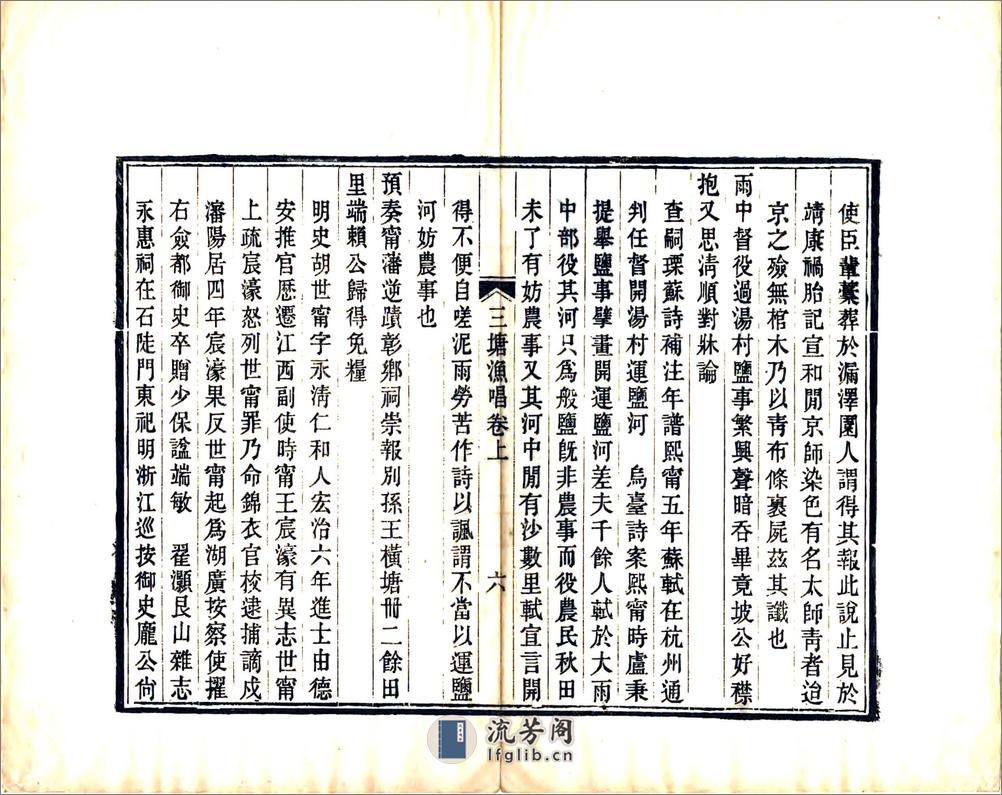 使臣輩藁葬於漏澤園人謂得其報此說止見於
靖康禍胎記宣和閒京師染色有名太師青者迨
京之殮無棺木乃以青布條裹屍茲其讖也
雨中督役過湯村鹽事繁興聲暗吞畢竟坡公好襟
抱又思淸順對牀論
查嗣瑮蘇詩補注年譜熙甯五年蘇軾在杭州通
判任督開湯村運鹽河　烏臺詩案熙甯時盧秉
提舉鹽事擘畫開運鹽河差夫千餘人軾於大雨
中部役其河只爲般鹽旣非農事而役農民秋田
未了有妨農事又其河中閒有沙數里軾宣言開
三塘漁唱卷上　六
得不便自嗟泥雨勞苦作詩以諷謂不當以運鹽
河妨農事也
預奏甯藩逆蹟彰鄉祠崇報別孫王橫塘卌二餘田
里端賴公歸得免糧
明史胡世甯字永淸仁和人宏治六年進士由德
安推官歷遷江西副使時甯王宸濠有異志世甯
上疏宸濠怒列世甯罪乃命錦衣官校逮捕謫戍
瀋陽居四年宸濠果反世甯起爲湖廣按察使擢
右僉都御史卒贈少保諡端敏　翟灝艮山雜志
永惠祠在石陡門東祀明浙江巡按御史龐公尙
流芳阁
lfglib.cn